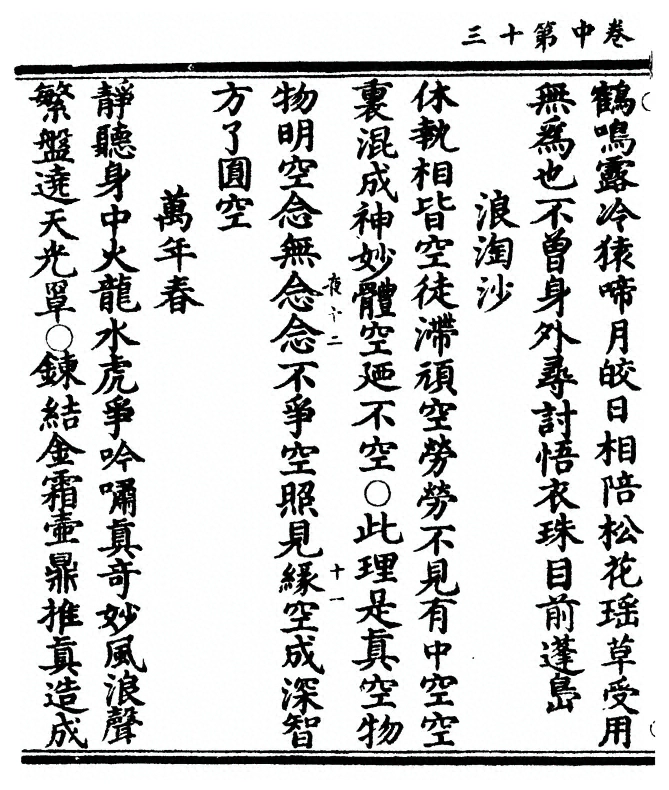 卷中第十三
鶴鳴露冷猿啼月皎日相陪松花瑶草受用
無爲也不曾身外尋討悟衣珠目前蓬島
浪淘沙
休執相皆空徒滯頑空勞勞不見有中空空
裏混成神妙體空廼不空○此理是真空物
物明空念無念念不爭空照見緣空成深智
夜十二
十一
方了圓空
萬年春
靜聽身中火龍水虎爭吟嘯真竒妙風浪聲
繁盤遶天光罩○鍊結金霜壷鼎推真造成